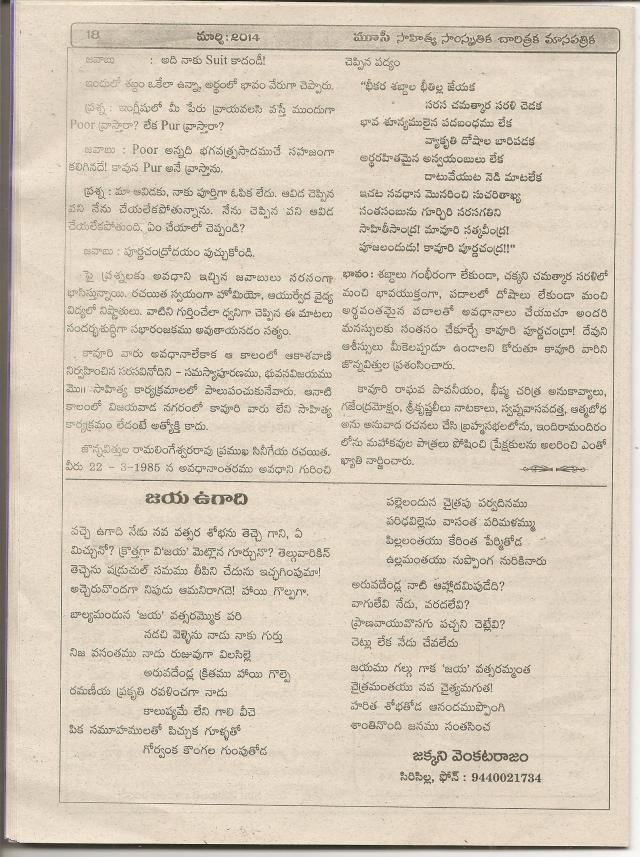 18
మార్చి: 2014
మూసీ సాహిత్య సాంస్కృతిక చారిత్రక మాసపత్రిక
జవాబు : అది నాకు Suit కాదండీ!
ఇందులో శబ్దం ఒకేలా ఉన్నా, అర్థంలో భావం వేరుగా చెప్పారు.
ప్రశ్న : ఇంగ్లీషులో మీ పేరు వ్రాయవలసి వస్తే ముందుగా
Poor వ్రాస్తారా? లేక Pur వ్రాస్తారా?
జవాబు : Poor అన్నది భగవత్ప్రసాదముచే సహజంగా
కలిగినదే! కావున Pur అనే వ్రాస్తాను.
ప్రశ్న : మా ఆవిడకు, నాకు పూర్తిగా ఓపిక లేదు. ఆవిడ చెప్పిన
పని నేను చేయలేకపోతున్నాను. నేను చెప్పిన పని ఆవిడ
చేయలేకపోతుంది. ఏం చేయాలో చెప్పండి?
జవాబు : పూర్ణచంద్రోదయం పుచ్చుకోండి.
పై ప్రశ్నలకు అవధాని ఇచ్చిన జవాబులు సరసంగా
భాసిస్తున్నాయి. రచయిత స్వయంగా హోమియో, ఆయుర్వేద వైద్య
విద్యలో నిష్ణాతులు. వాటిని గుర్తించేలా ధ్వనిగా చెప్పిన ఈ మాటలు
సందర్భశుద్ధిగా సభారంజకము అవుతాయనడం సత్యం.
కావూరి వారు అవధానాలేకాక ఆ కాలంలో ఆకాశవాణి
నిర్వహించిన సరసవినోదిని - సమస్యాపూరణము, భువనవిజయము
మొ॥ సాహిత్య కార్యక్రమాలలో పాలుపంచుకునేవారు. ఆనాటి
కాలంలో విజయవాడ నగరంలో కావూరి వారు లేని సాహిత్య
కార్యక్రమం లేదంటే అత్యోక్తి కాదు.
జొన్నవిత్తుల రామలింగేశ్వరరావు ప్రముఖ సినీగేయ రచయిత.
వీరు 22 - 3-1985 న అవధానాంతరము అవధాని గురించి
చెప్పిన పద్యం
"భీకర శబ్దాల భీతిల్ల జేయక
సరస చమత్కార సరళి చెడక
భావ శూన్యములైన పదబంధము లేక
వ్యాకృతి దోషాల బారిపడక
అర్థరహితమైన అన్వయంబులు లేక
దాటువేయుట నెడి మాటలేక
ఇచట నవధాన మొసరించి సుచరితాఖ్య
సంతసంబును గూర్చిరి సరసగతిని
సాహితీసాంద్ర! మాపూరి సత్కవీంద్ర!
పూజలందుదు! కావూరి పూర్ణచంద్ర!!"
భావం: శబ్దాలు గంభీరంగా లేకుండా, చక్కని చమత్కార సరళిలో
మంచి భావయుక్తంగా, పదాలలో దోషాలు లేకుండా మంచి
అర్థవంతమైన పదాలతో అవధానాలు చేయుచూ అందరి
మనస్సులకు సంతసం చేకూర్చే కావూరి పూర్ణచంద్రా! దేవుని
ఆశీస్సులు మీకెలప్పుడూ ఉండాలని కోరుతూ కావూరి వారిని
జొన్నవిత్తుల ప్రశంసించారు.
కావూరి రాఘవ పావనీయం, భీష్మ చరిత్ర అనుకావ్యాలు,
గజేంద్రమోక్షం, శ్రీకృష్ణలీలు నాటకాలు, స్వప్నవాసవదత్త, ఆత్మబోధ
అను అనువాద రచనలు చేసి బ్రహ్మసభలలోను, ఇందిరామందిరం
లోను మహాకవుల పాత్రలు పోషించి ప్రేక్షకులను అలరించి ఎంతో
ఖ్యాతి నార్జించారు.
జయ ఉగాది
వచ్చె ఉగాది నేడు నవ వత్సర శోభను తెచ్చె గాని, ఏ
మిచ్చునో? క్రొత్తగా వి'జయ' మెట్లొన గూర్చునో? తెల్గువారికిన్
తెచ్చెను షడ్రుచుల్ సమము తీపిని చేదును ఇచ్చగింపుమా!
అచ్చెరువొందగా నిపుడు ఆమనిరాగదె! హాయి గొల్పగా.
బాల్యమందున 'జయ' వత్సరమ్మొక పరి
నడచి వెళ్ళెను నాడు నాకు గుర్తు
నిజ వసంతము నాడు రుజువుగా విలసిల్లె
అరువదేండ్ల క్రితము హాయి గొల్పె
రమణీయ ప్రకృతి రవళించగా నాడు
కాలుష్యమే లేని గాలి వీచె
పిక సమూహములతో పిచ్చుక గూళ్ళతో
గోర్వంక కొంగల గుంపుతోడ
పల్లెలందున చైత్రపు పర్వదినము
పరిఢవిల్లెను వాసంత పరిమళమ్ము
పిల్లలంతయు కేరింత పేర్మితోడ
ఉల్లమంతయు నుప్పొంగ నురికినారు
అరువదేండ్ల నాటి ఆహ్లాదమిపుడేది?
వాగులేవి నేడు, వరదలేవి?
ప్రాణవాయువొసగు పచ్చని చెట్లేవి?
చెట్లు లేక నేడు చేవలేదు
జయము గల్గు గాక 'జయ' వత్సరమ్మంత
చైత్రమంతయు నవ చైత్యమగుత!
హరిత శోభతోడ ఆనందముప్పొంగి
శాంతినొంది జనము సంతసించ
జక్కని వెంకటరాజం
సిరిసిల్ల, ఫోన్ : 9440021734